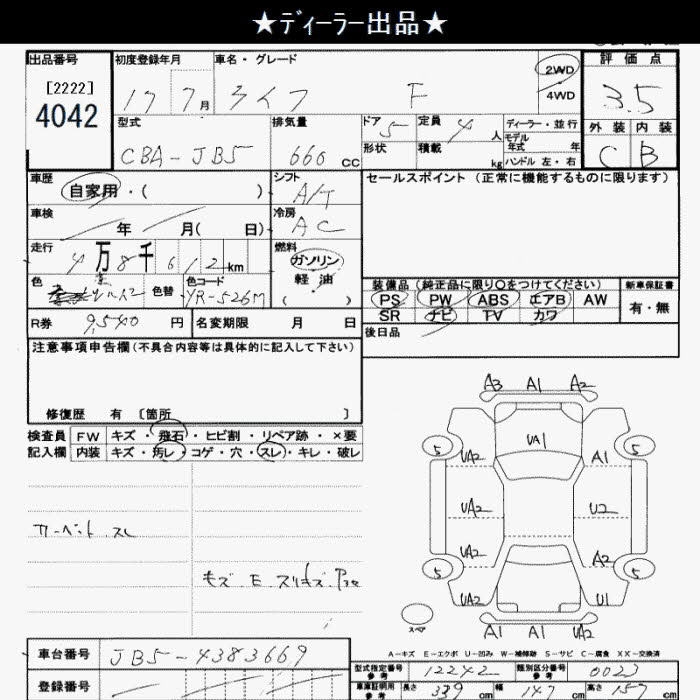 ★ディーラー出品★
出品番号 初度登録年月 車名・グレード 評価点
[2222] 17 7月 ライフ F 2WD 3.5
4042 4WD
型式 排気量 ドア 5 定員 4人 ディーラー・並行 外装 内装
モデル年式 年
CBA-JB5 660cc 形状 積載 kg ハンドル 左・右 C B
車歴 シフト セールスポイント(正常に機能するものに限ります)
自家用・( ) A/T
車検 冷房
年 月( 日) AC
走行 燃料
4万8千612km ガソリン
色 色替 色コード 軽油 装備品(純正品に限り○をつけてください) 新車保証書
YR-526M ( ) PS PW ABS エアB AW 有・無
SR ナビ TV カワ
R券 9,540円 名変期限 月 日 後日品
注意事項申告欄(不具合内容等は具体的に記入して下さい)
修復歴 有 [箇所 ]
A3 A1 A2
検査員 FW キズ・飛石・ヒビ割・リペア跡・×要
記入欄 内装 キズ・汚レ・コゲ・穴・スレ・キレ・破レ
UA1
5 UA2 A1 5
UA2 U2
カーペット スレ
UA2 A2
キズ E スリキズ
5 UA2 U1 5
スペア A1 A1 A2
A-キズ E-エクボ U-凹み W-補修跡 S-サビ C-腐食 XX-交換済
車台番号 JB5-4383669 型式指定番号 参考 12242 類別区分番号 参考 0023
登録番号 車庫証明用 参考 長さ 339cm 幅 147cm 高さ 157cm